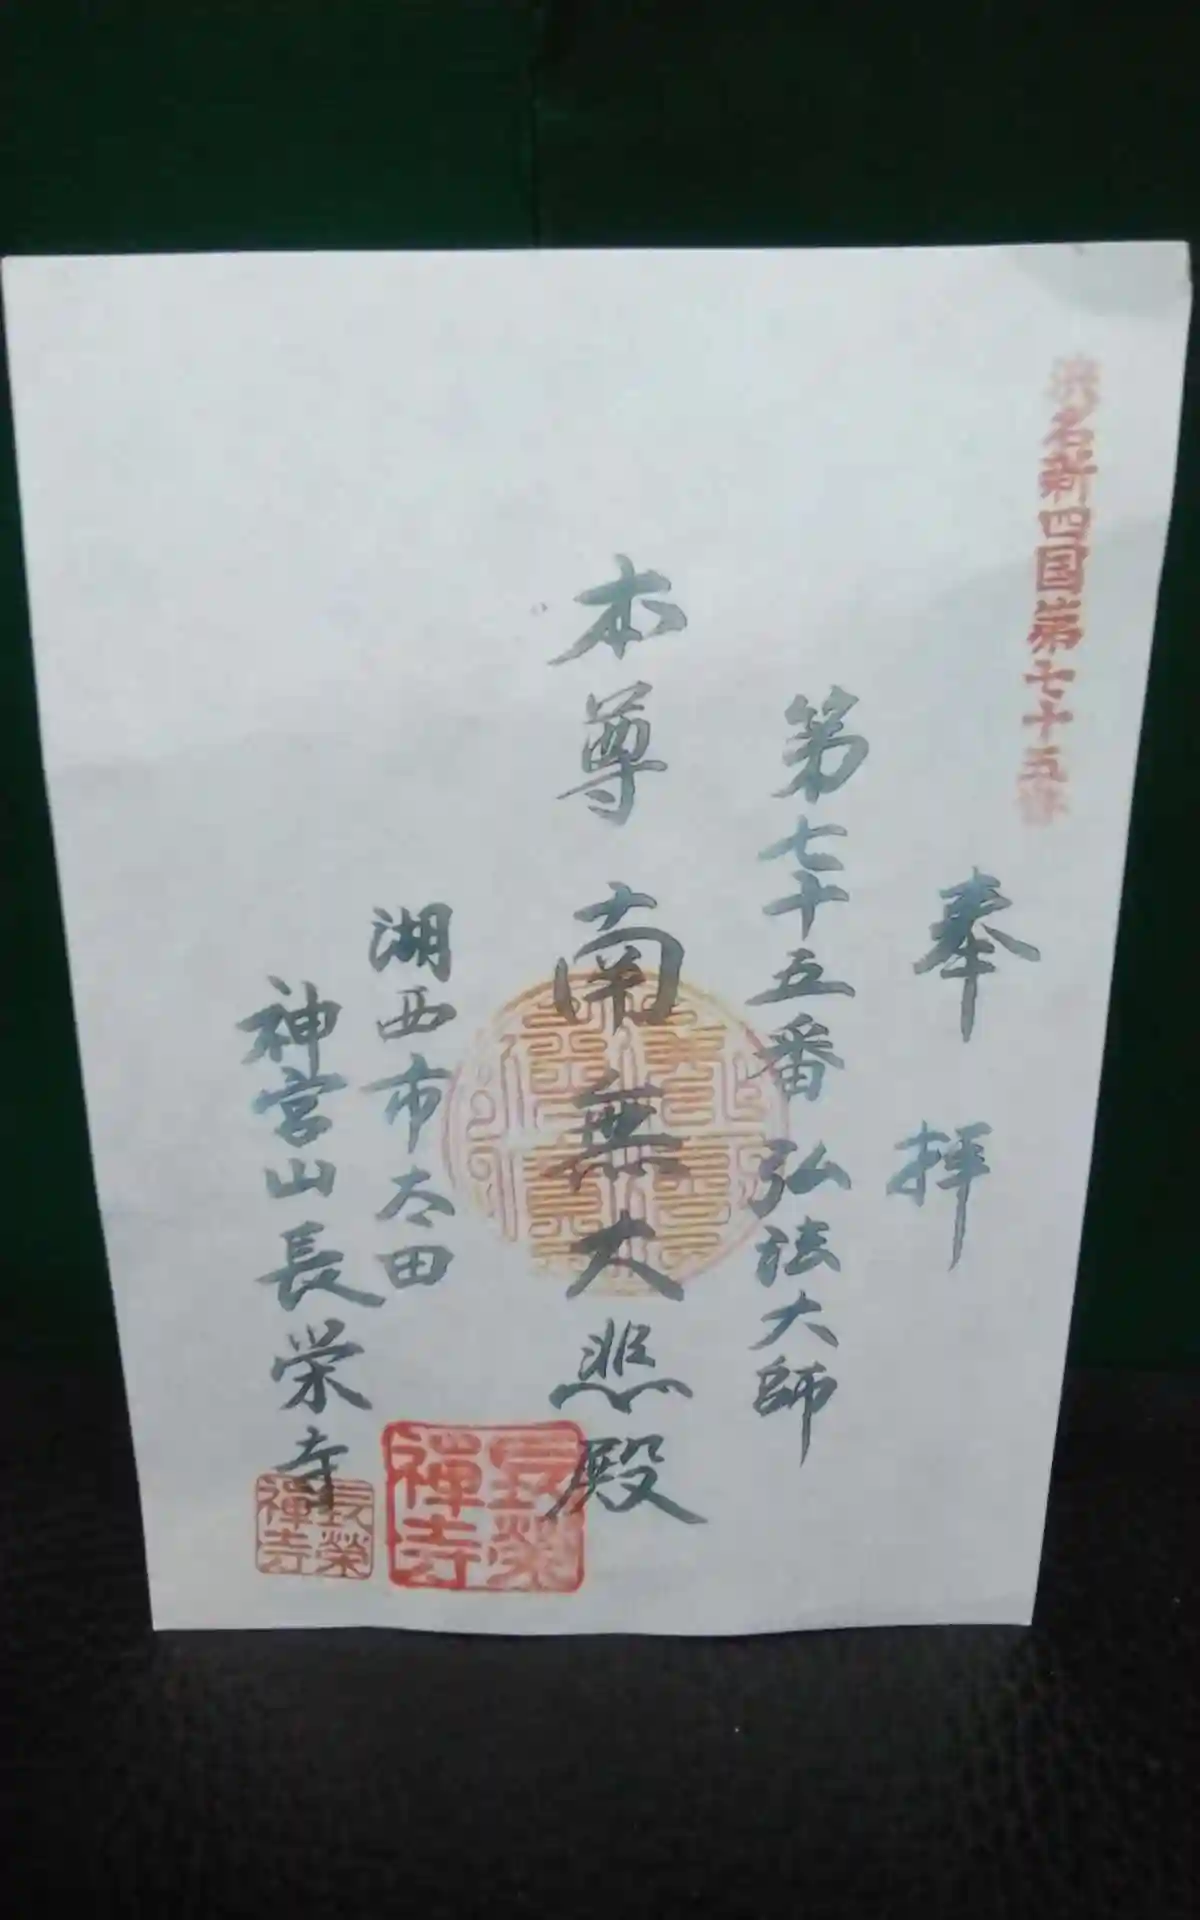 浜名新四国第七十五番
奉拝
第七十五番 弘法大師
本尊 南無大悲殿
湖西市太田
神宮山長栄寺
長榮禅寺
長榮禅寺